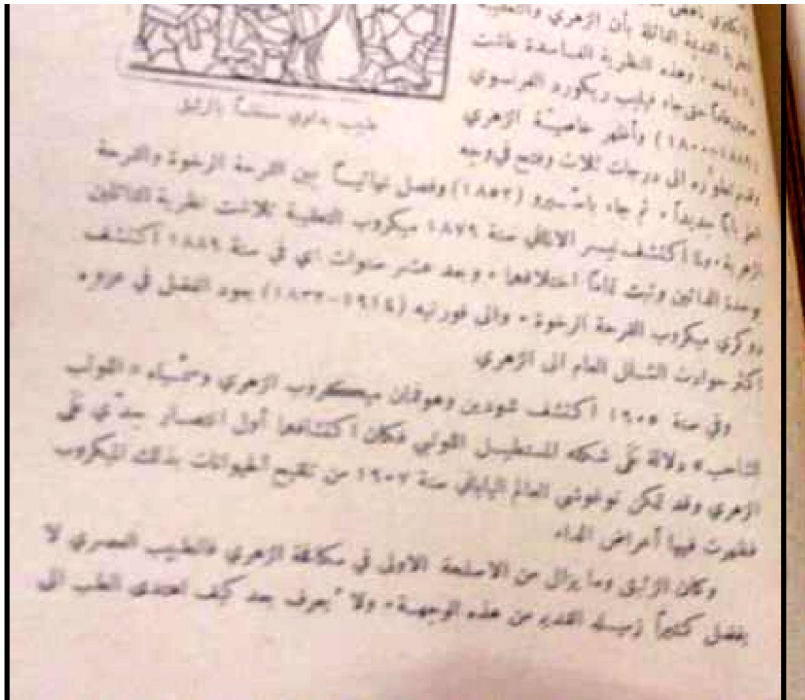 النظرية القديمة القائلة بأن الزهري والتعقيبة
داء واحد، وهذه النظرية الفاسدة عاشت
حتى جاء فيليب ريكورد الفرنسوي
(١٨٠٠-١٨٨٩) وأظهر خاصية الزهري
وقسم تطوره الى درجات ثلاث وفتح في وجه
طبيب يداوي مستعيناً بالزئبق
باباً جديداً. ثم جاء باسيرو (١٨٥٢) وفصل نهائياً بين القرحة الرخوة والقرحة
الزهرية. ولما اكتشف نيسر الالماني سنة ١٨٧٩ ميكروب التعقيبة تلاشت نظرية القائلين
وحدة الدائين وثبت تماماً اختلافهما. وبعد عشر سنوات اي في سنة ١٨٨٩ اكتشف
دوكري ميكروب القرحة الرخوة. والى فورنيه (١٩١٤-١٨٣٢) يعود الفضل في عزوه
اكثر حوادث الشلل العام الى الزهري
وفي سنة ١٩٠٥ اكتشف شودين وهوفمان ميكروب الزهري وسمياه «اللولب
الشاحب» دلالة على شكله المستطيل اللولبي فكان اكتشافهما أول انتصار جدّي على
الزهري وقد تمكن نوغوشي العالم الياباني سنة ١٩٠٢ من تلقيح الحيوانات بذلك الميكروب
فظهرت فيها أعراض الداء
وكان الزئبق وما يزال من الاسلحة الاولى في مكافحة الزهري فالطبيب العصري لا
يفضل كثيراً زميله القديم من هذه الوجهة. ولا يُعرف بعد كيف اهتدى الطب الى